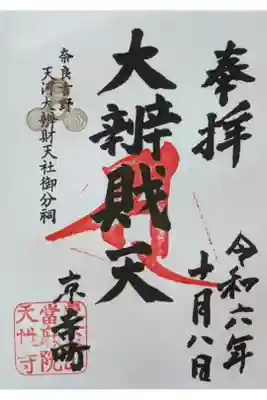 奉拝
令和六年
十月八日
大辨財天
京寺町
奈良吉野
天河大辨財天社御分祠
當麻院
天性寺